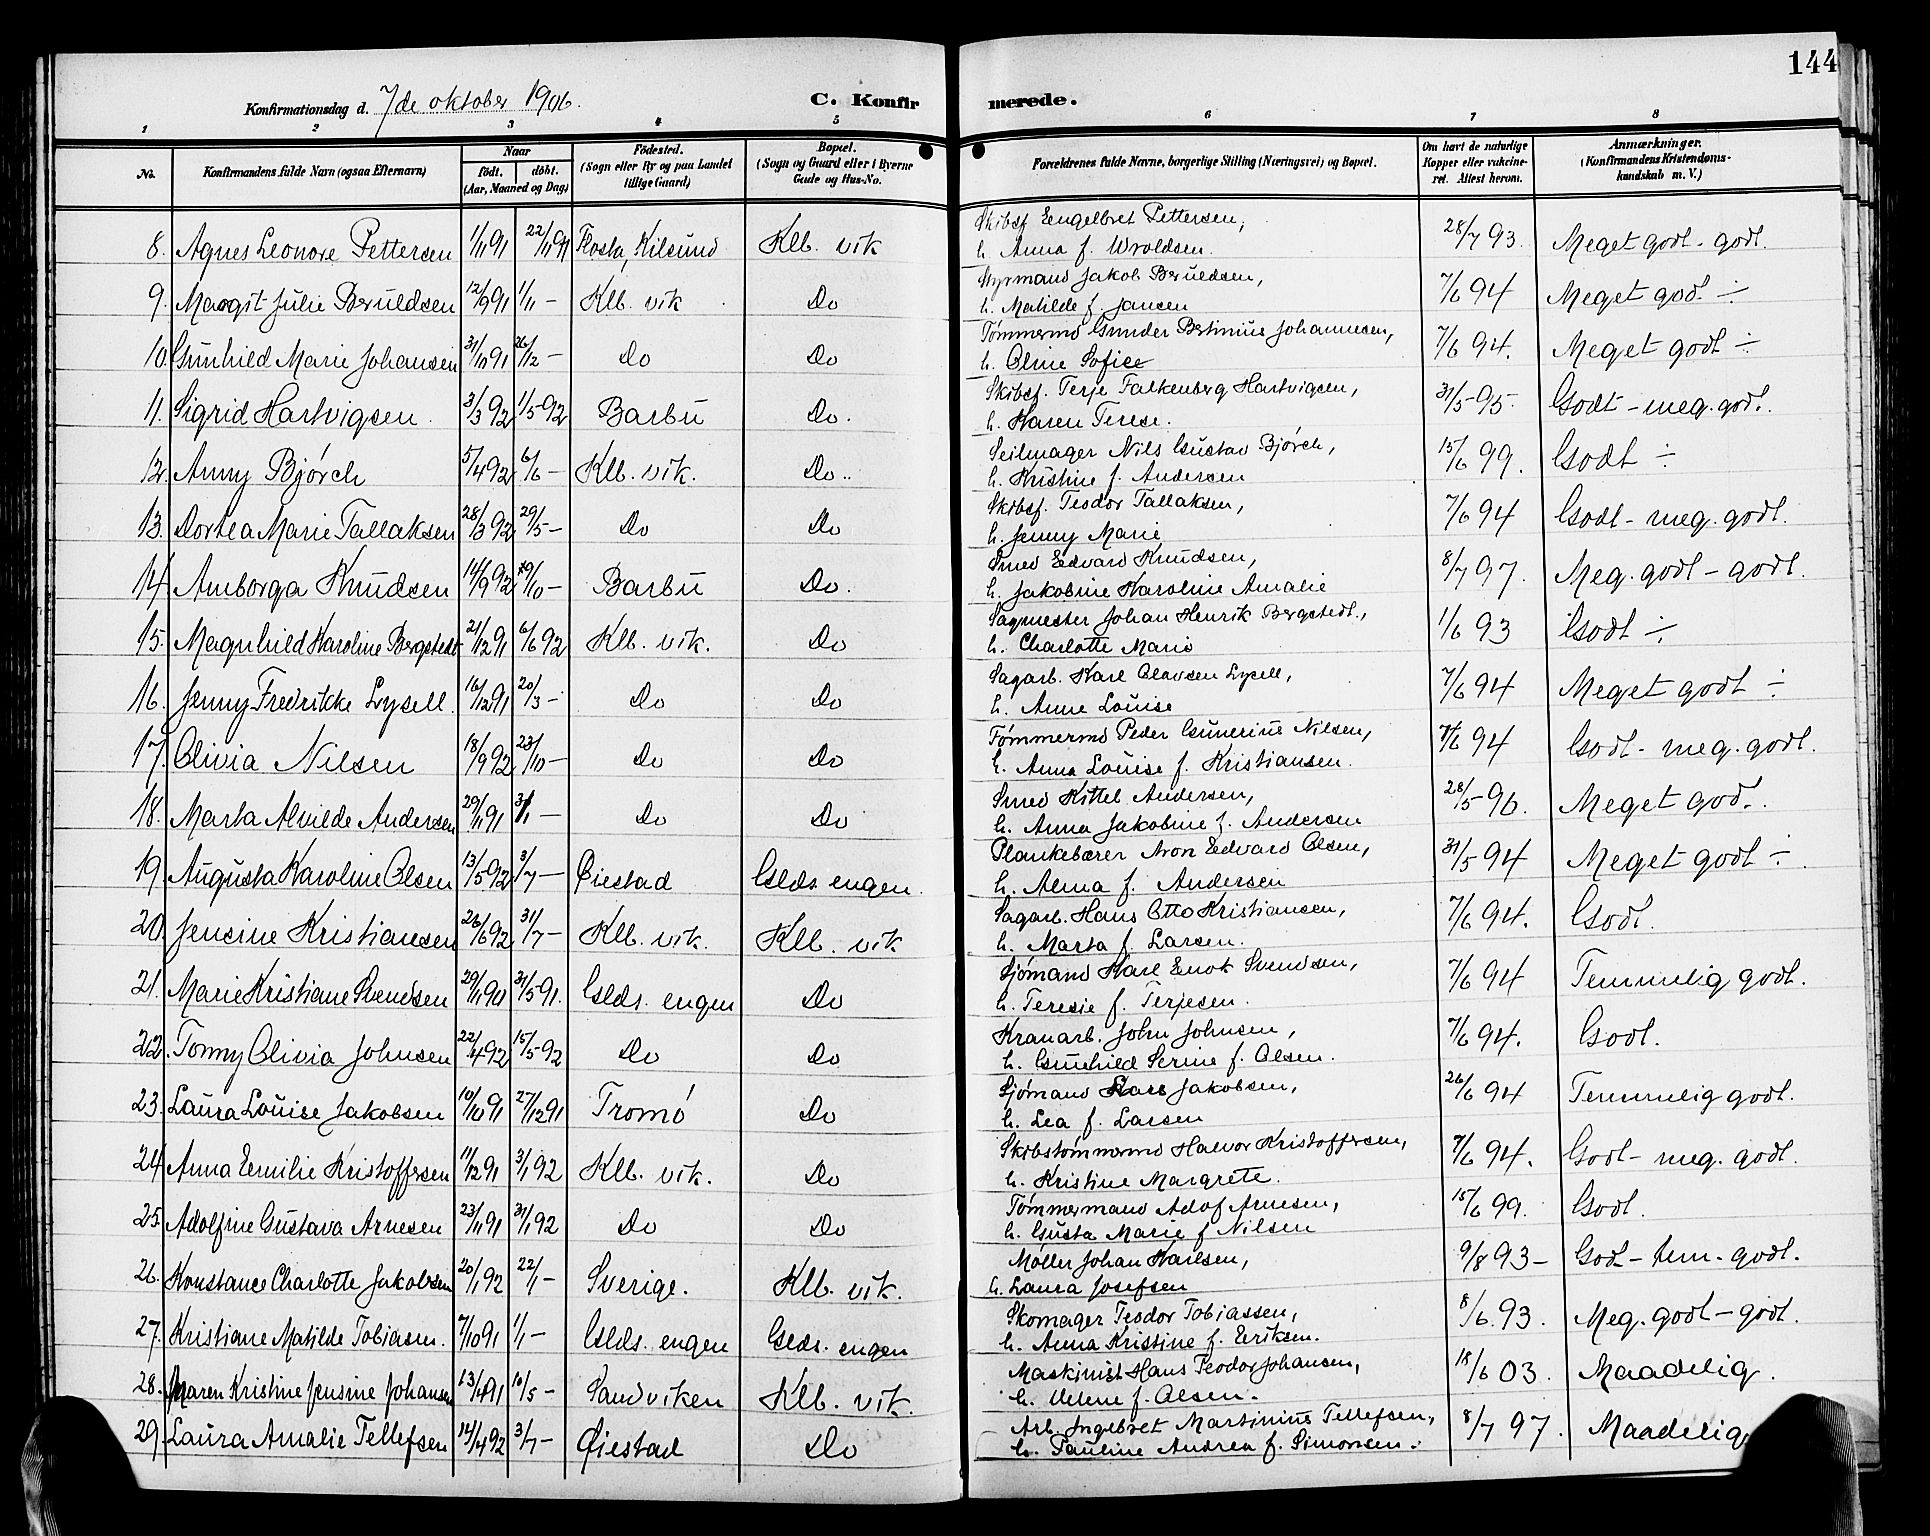 144
Konfirmationsdag d. 7de oktober 1906.
C. Konfirmerede.
1 2 3 4 5 6 7 8
No. Konfirmandens fulde Navn (ogsaa Efternavn) Naar født. døbt. (Aar, Maaned og Dag) Fødested. (Sogn eller By og paa Landet tillige Gaard) Bopæl. (Sogn og Gaard eller i Byerne Gade og Hus-No. Forældrenes fulde Navne, borgerlige Stilling (Næringsvei) og Bopæl. Om havt de naturlige Kopper eller vakcineret. Attest herom. Anmærkninger. (Konfirmandens Kristendomskundskab m. V.)
Skibsf. Eengelbret Pettersen,
8. Agnes Leonore Pettersen 1/11 91 22/11 91 Flosta, Kilsund Klb. vik h. Anna f. Wroldsen. 28/7 93. Meget godt - godt.
Styrmand Jakob Beruldsen,
9. Margit Julie Beruldsen 12/9 91 1/11 - Klb. vik Do h. Matilde f. Jansen 7/6 94 Meget god. ÷
Tømmermd Gunder Bertinius Johannesen,
10. Gunhild Marie Johansen 31/10 91 26/12 - Do Do h. Oline Sofice 7/6 94. Meget godt ÷
Skibsf. Terje Falkenberg Hartvigsen,
11. Sigrid Hartvigsen. 3/3 92 1/5-92 Barbu Do. h. Karen Terese. 31/5-95. Godt - meg. godt.
Seilmager Nils Gustav Bjørch,
12. Anny Bjørch 5/4 92 6/6 - Klb. vik. Do.. h. Kristine f. Andersen 15/6 99. Godt ÷
Skibsf. Teodor Tallaksen,
13. Dortea Marie Tallaksen 28/3 92 29/5 - Do Do h. Jenny Marie 7/6 94 Godt - meg. godt.
Smed Edvard Knudsen,
14. Amborga Knudsen 14/9 92 /10 - Barbu Do. h. Jakobine Karoline Amalie 8/7 97. Meg. godt - godt.
Sagmester Johan Henrik Bergstedt.,
15. Magnhild Karoline Bergstedt 21/12 91 6/6 92 Klb. vik. Do h. Charlotte Marie 1/6 93 Godt ÷
Sagarb. Karl Olavsen Lysell,
16. Jenny Fredrikke Lysell. 16/12 91 20/3 - Do Do h. Anne Louise 7/6 94 Meget godt ÷
Tømmermd Peder Gunerius Nilsen,
17. Olivia Nilsen 18/9 92 23/10 - Do Do h. Anna Louise f. Kristiansen. 7/6 94 Godt - meg. godt.
Smed Kittel Andersen,
18. Marta Alvilde Andersen 29/11 91 /1 - Do Do h. Anna Jakobine f. Andersen 28/5-96. Meget god..
Plankebærer Aron Edvard Olsen,
19. Augusta Karoline Olsen 13/5 92 3/7 - Øiestad Gslds. engen. h. Alma f. Andersen 31/5 94 Meget godt ÷
Sagarb. Hans Otto Kristiansen,
20. Jensine Kristiansen 26/6 92 31/7 - Klb. vik. Klb. vik h. Marta f. Larsen. 7/6 94. Godt.
Sjømand Karl Enok Svendsen,
21. Marie Kristiane Svendsen 29/11 90 31/5 91. Gslds. engen Do h. Teresie f. Terjesen. 7/6 94 Temmelig godt.
Kranarb. John Johnsen,
22. Tonny Olivia Johnsen 22/4 92 15/5-92 Do Do h. Gunhild Serine f. Olsen. 7/6 94. Godt.
Sjømand Lars Jakobsen,
23. Laura Louise Jakobsen 10/10 91 27/12 91 Tromö Do h. Lea f. Larsen 26/6 94 Temmelig godt.
Skibstømmermd Halvor Kristoffersen,
24. Anna Eemilie Kristoffersen 11/12 91 3/1 92 Klb. vik. Do h. Kristine Margrete. 7/6 94. Godt - meg. godt.
Tømmermand Adof Arnesen,
25. Adolfine Gustava Arnesen 23/11 91 31/1 92 Do Do h. Gusta Marie f Nilsen 15/6 99. Godt.
Møller Johan Karlsen,
26. Konstance Charlotte Jakobsen 20/1 92 22/1 - Sverige. Klb. vik. h. Laura Josefsen 9/8 93 - God - tem. godt.
Skomager Teodor Tobiassen,
27. Kristiane Matilde Tobiasen. 7/10 91 1/1 - Gslds. engen Gslds. engen h. Anna Kristine f. Eeriksen. 8/6. 93. Meg. godt - godt.
Maskinist Hans Teodor Johansen,
28. Maren Kristine Jensine Johansen 13/4 91 10/5 - Sandviken Klb. vik. h. Helene f. Olsen. 18/6 03. Maadelig.
Arb. Ingebret Martinius Tellefsen,
29. Laura Amalie Tellefsen 14/4 92 3/7 - Øiestad Do h. Pauline Andrea f. Simonsen. 8/7 97. Maadelig